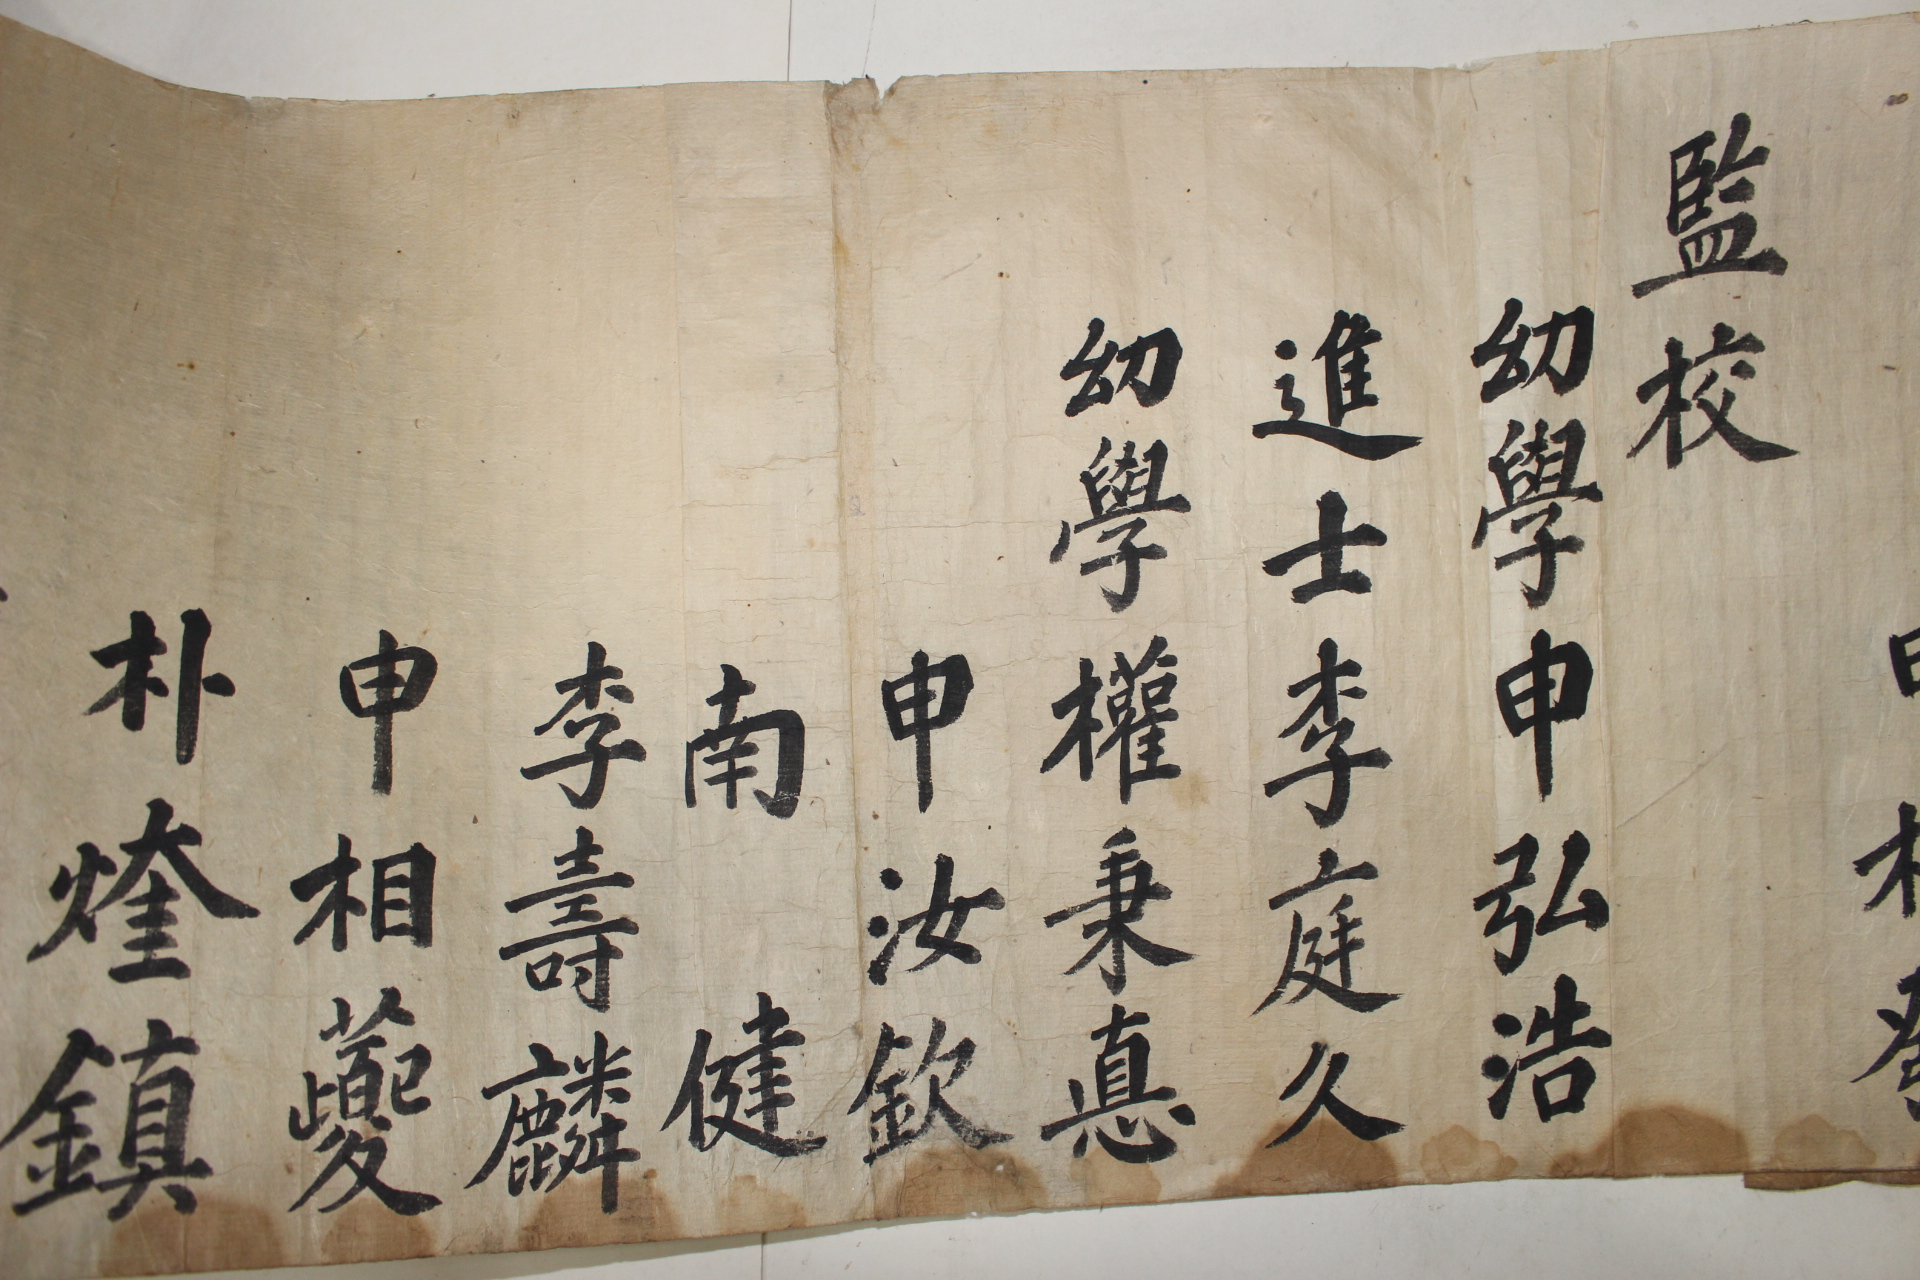 監校
幼學申弘浩
進士李庭久
幼學權秉悳
申汝欽
南健
李壽麟
申相夔
朴煃鎮